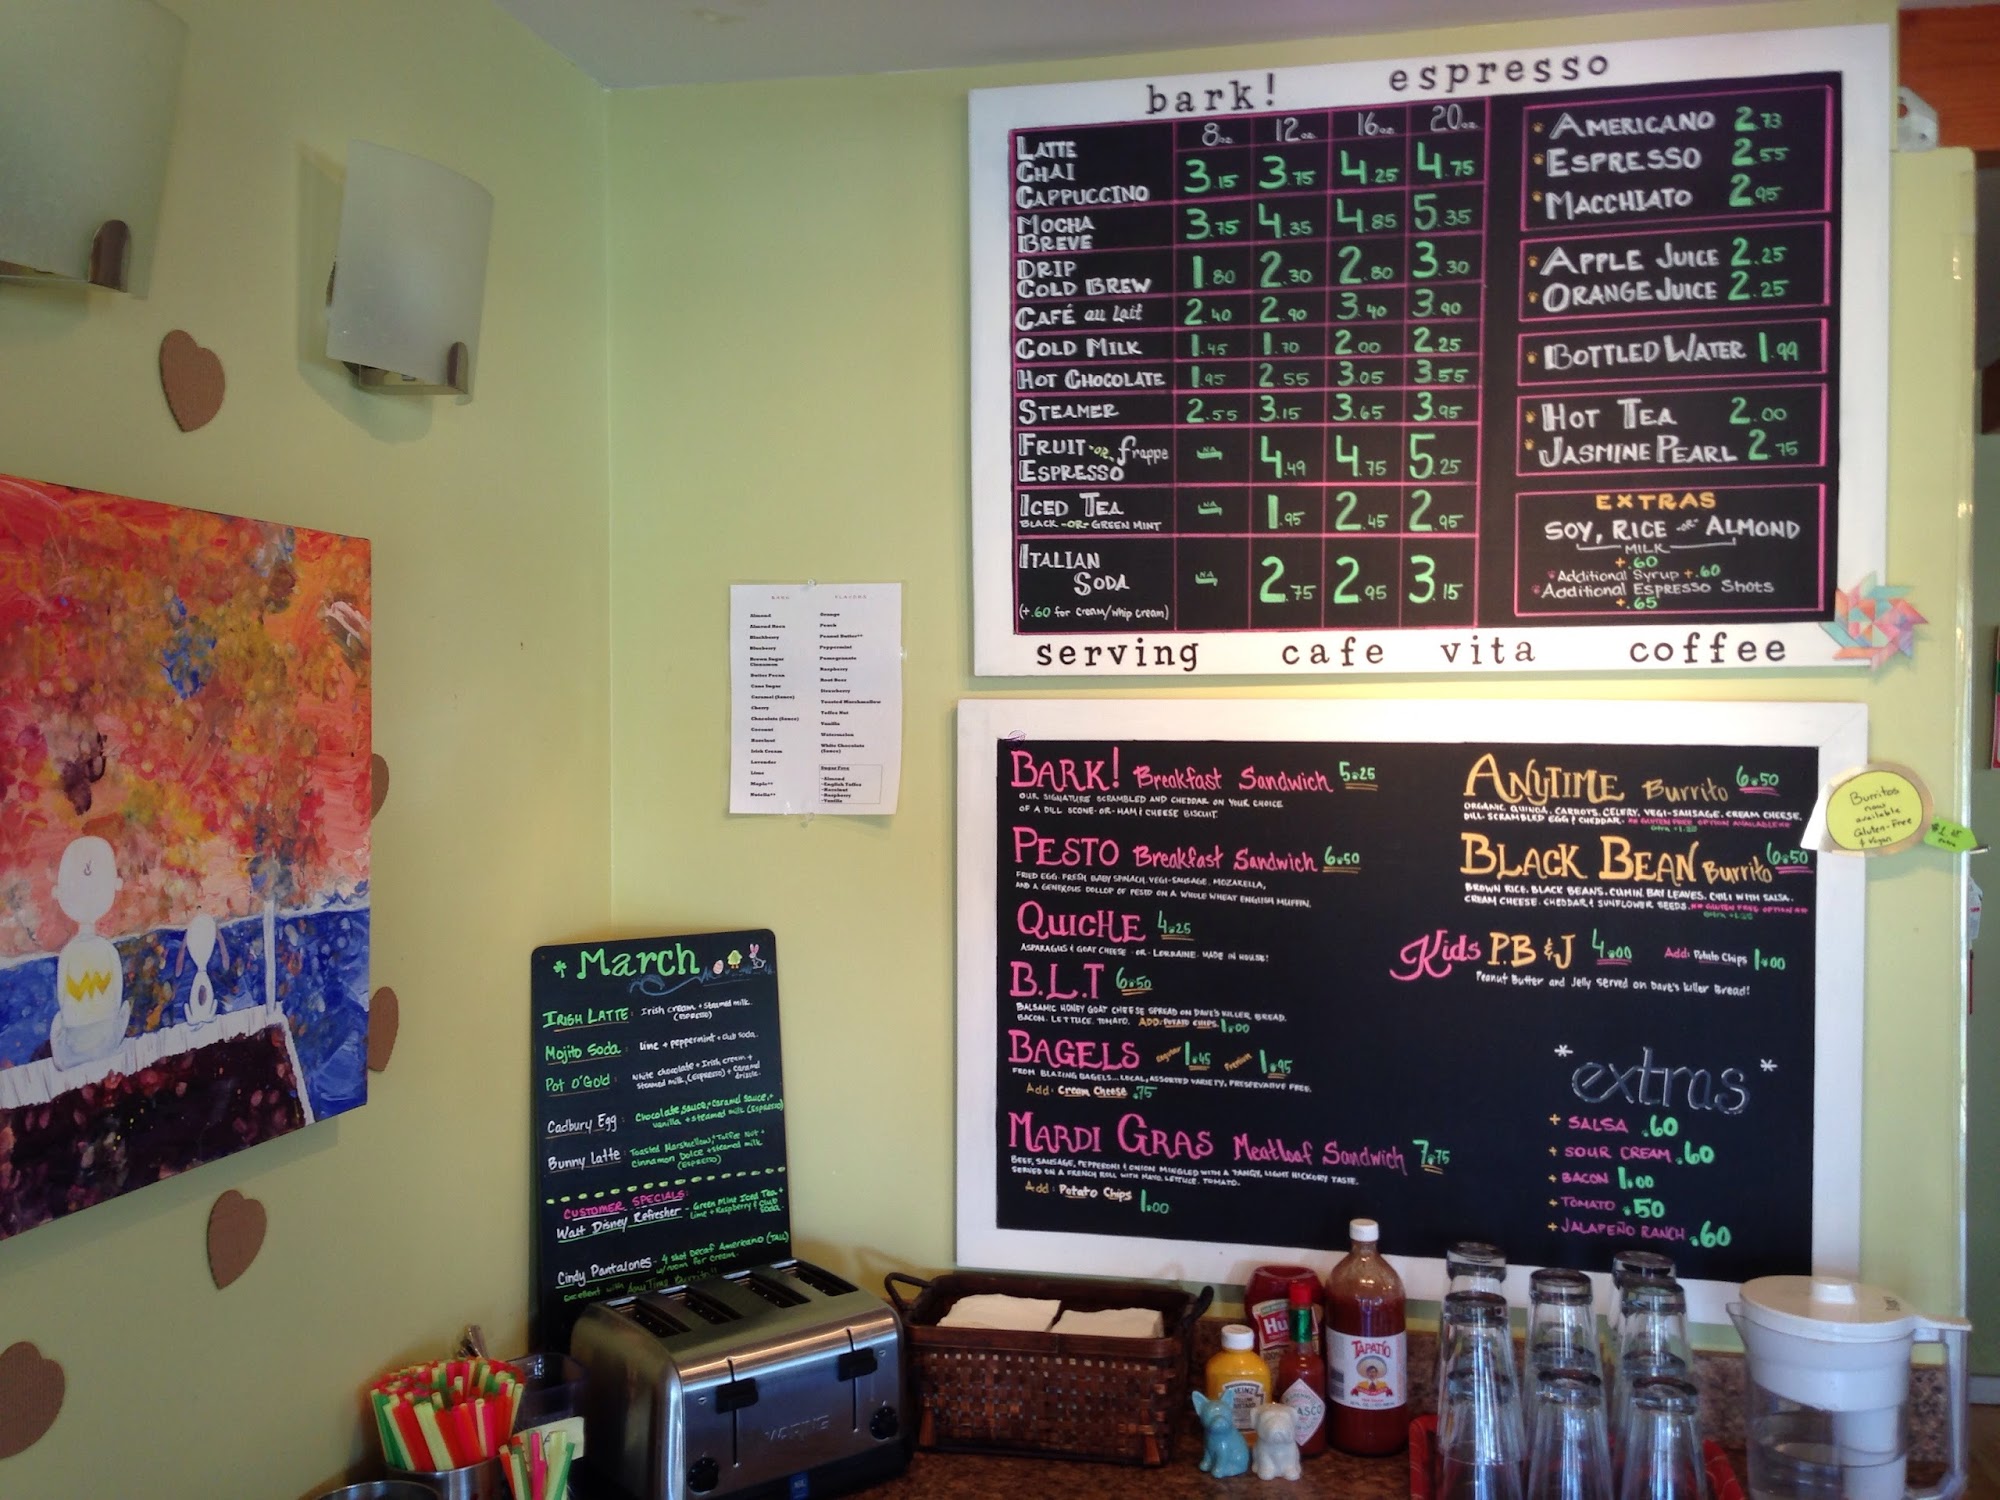 bark! espresso
8oz 12oz 16oz 20oz
LATTE
CHAI
CAPPUCCINO 3.15 3.75 4.25 4.75
MOCHA
BREVE 3.75 4.35 4.85 5.35
DRIP
COLD BREW 1.80 2.30 2.80 3.30
CAFÉ au Lait 2.40 2.90 3.40 3.90
COLD MILK 1.45 1.70 2.00 2.25
HOT CHOCOLATE 1.95 2.55 3.05 3.55
STEAMER 2.55 3.15 3.65 3.95
FRUIT -OR- frappe
ESPRESSO NA 4.49 4.75 5.25
ICED TEA
BLACK -OR- GREEN MINT NA 1.95 2.45 2.95
ITALIAN
SODA NA 2.75 2.95 3.15
(+.60 for cream/whip cream)
AMERICANO 2.73
ESPRESSO 2.55
MACCHIATO 2.95
APPLE JUICE 2.25
ORANGE JUICE 2.25
BOTTLED WATER 1.99
HOT TEA 2.00
JASMINE PEARL 2.75
EXTRAS
SOY, RICE -or- ALMOND
MILK
+.60
Additional Syrup +.60
Additional ESPRESSO SHOTS
+.65
serving cafe vita coffee
BARK! Breakfast Sandwich 5.25
OUR SIGNATURE SCRAMBLED AND CHEDDAR ON YOUR CHOICE
OF A DILL SCONE -OR- HAM & CHEESE BISCUIT.
PESTO Breakfast Sandwich 6.50
FRIED EGG. FRESH BABY SPINACH. VEGI-SAUSAGE. MOZARELLA,
AND A GENEROUS DOLLOP OF PESTO ON A WHOLE WHEAT ENGLISH MUFFIN.
QUICHE 4.25
ASPARAGUS & GOAT CHEESE -OR- LORRAINE. MADE IN HOUSE!
B.L.T 6.50
BALSAMIC HONEY GOAT CHEESE SPREAD ON DAVE'S KILLER BREAD.
BACON. LETTUCE. TOMATO. ADD: POTATO CHIPS. 1.00
BAGELS Regular 1.45 Premium 1.95
FROM BLAZING BAGELS...LOCAL, ASSORTED VARIETY, PRESERVATIVE FREE.
Add: Cream Cheese .75
MARDI GRAS Meatloaf Sandwich 7.75
BEEF, SAUSAGE, PEPPERONI & ONION MINGLED WITH A TANGY, LIGHT HICKORY TASTE.
SERVED ON A FRENCH ROLL WITH MAYO. LETTUCE. TOMATO.
Add: Potato Chips 1.00
ANYTIME Burrito 6.50
ORGANIC QUINOA, CARROTS, CELERY, VEGI-SAUSAGE, CREAM CHEESE,
DILL SCRAMBLED EGG & CHEDDAR. ** GLUTEN FREE OPTION AVAILABLE **
BLACK BEAN Burrito 6.50
BROWN RICE. BLACK BEANS. CUMIN. BAY LEAVES. CHILI WITH SALSA.
CREAM CHEESE. CHEDDAR, & SUNFLOWER SEEDS. ** GLUTEN FREE OPTION **
Kids P.B & J 4.00 Add: Potato Chips 1.00
Peanut Butter and Jelly served on Dave's Killer Bread!
* extras *
+ SALSA .60
+ SOUR CREAM .60
+ BACON 1.00
+ TOMATO .50
+ JALAPEÑO RANCH .60
Burritos
now
available
Gluten-Free
& Vegan
March
IRISH LATTE: Irish cream + steamed milk.
(ESPRESSO)
Mojito Soda: lime + peppermint + club soda.
Pot O' Gold: White chocolate + Irish cream +
steamed milk, (ESPRESSO) + caramel
drizzle.
Cadbury Egg: Chocolate sauce, + caramel sauce, +
vanilla + steamed milk (ESPRESSO)
Bunny Latte: Toasted Marshmallow, + Toffee Nut +
Cinnamon Dolce + steamed milk
(ESPRESSO)
CUSTOMER SPECIALS:
Walt Disney Refresher - Green Mint Iced Tea +
Lime + Raspberry & club
soda.
Cindy Pantalones - 4 shot Decaf Americano (TALL)
w/room for cream.
Excellent with Anytime Burrito!!
BARK FLAVORS
Almond
Almond Roca
Blackberry
Blueberry
Brown Sugar
Cinnamon
Butter Pecan
Cane Sugar
Caramel (Sauce)
Cherry
Chocolate (Sauce)
Coconut
Hazelnut
Irish Cream
Lavender
Lime
Maple**
Nutella**
Orange
Peach
Peanut Butter**
Peppermint
Pomegranate
Raspberry
Root Beer
Strawberry
Toasted Marshmallow
Toffee Nut
Vanilla
Watermelon
White Chocolate
(Sauce)
Sugar Free
~Almond
~English Toffee
~Hazelnut
~Raspberry
~Vanilla
TAPATÍO
HEINZ